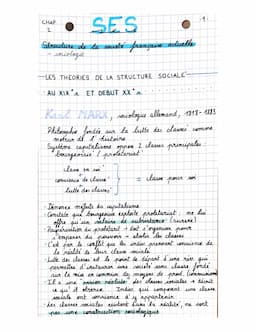 CHAP 1
SES
-1-
Structure de la société française actuelle
- sociologie
LES THÉORIES DE LA STRUCTURE SOCIALE
AU XIX°s ET DEBUT XX°s
Karl MARX, sociologue allemand, 1818-1883
Philosophie fondée sur la lutte des classes comme
moteur de l'histoire
Système capitalisme oppose 2 classes principales :
bourgeoisie / prolétariat
classe en soi
conscience de classe = classe pour soi
lutte des classes
Dénonce méfaits du capitalisme
Constate que bourgeoisie exploite prolétariat : ne lui
offre qu'un salaire de subsistance (survie)
prolétariat doit s'organiser pour
s'emparer du pouvoir → abolir les classes
C'est par le conflit que les individus prennent conscience de
la réalité de leur classe sociale
Lutte des classes est le point de départ d'une
permettra d'instaurer une société sans classe fondée
sur la mise en commun de moyens de prod. (communisme)
Il a une vision réaliste des classes sociales → décrit
ce qu'il observe. Indiv. qui composent une classe
sociale ont conscience d'y appartenir
Les classes sociales existent dans la réalité, ne sont
pas une construction sociologique